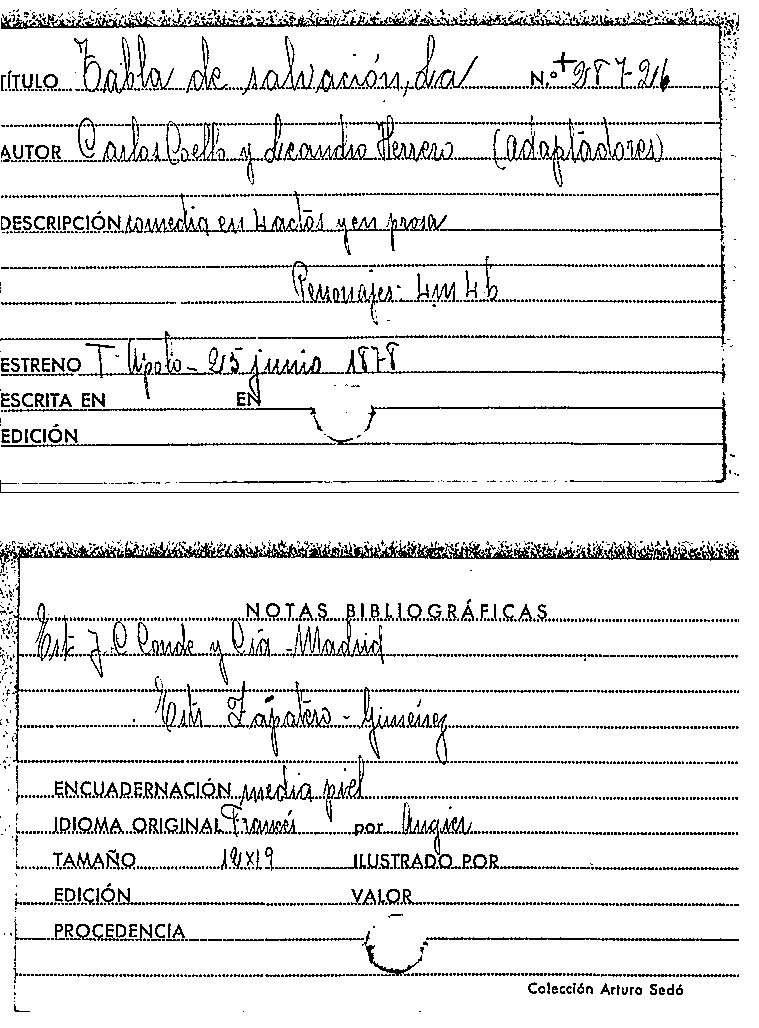 TÍTULO Tabla de salvación, La N.º +287-26
AUTOR Carlos Coello y Leandro Herrero (adaptadores)
DESCRIPCIÓN comedia en 4 actos y en prosa
Personajes: 4m 4h
ESTRENO T. Apolo - 25 junio 1878
ESCRITA EN EN
EDICIÓN
NOTAS BIBLIOGRÁFICAS
Est J. C Conde y Cía - Madrid
Estr Zapatero - Giménez
ENCUADERNACIÓN media piel
IDIOMA ORIGINAL Francés por Augier
TAMAÑO 12x19 ILUSTRADO POR
EDICIÓN VALOR
PROCEDENCIA
Colección Arturo Sedó